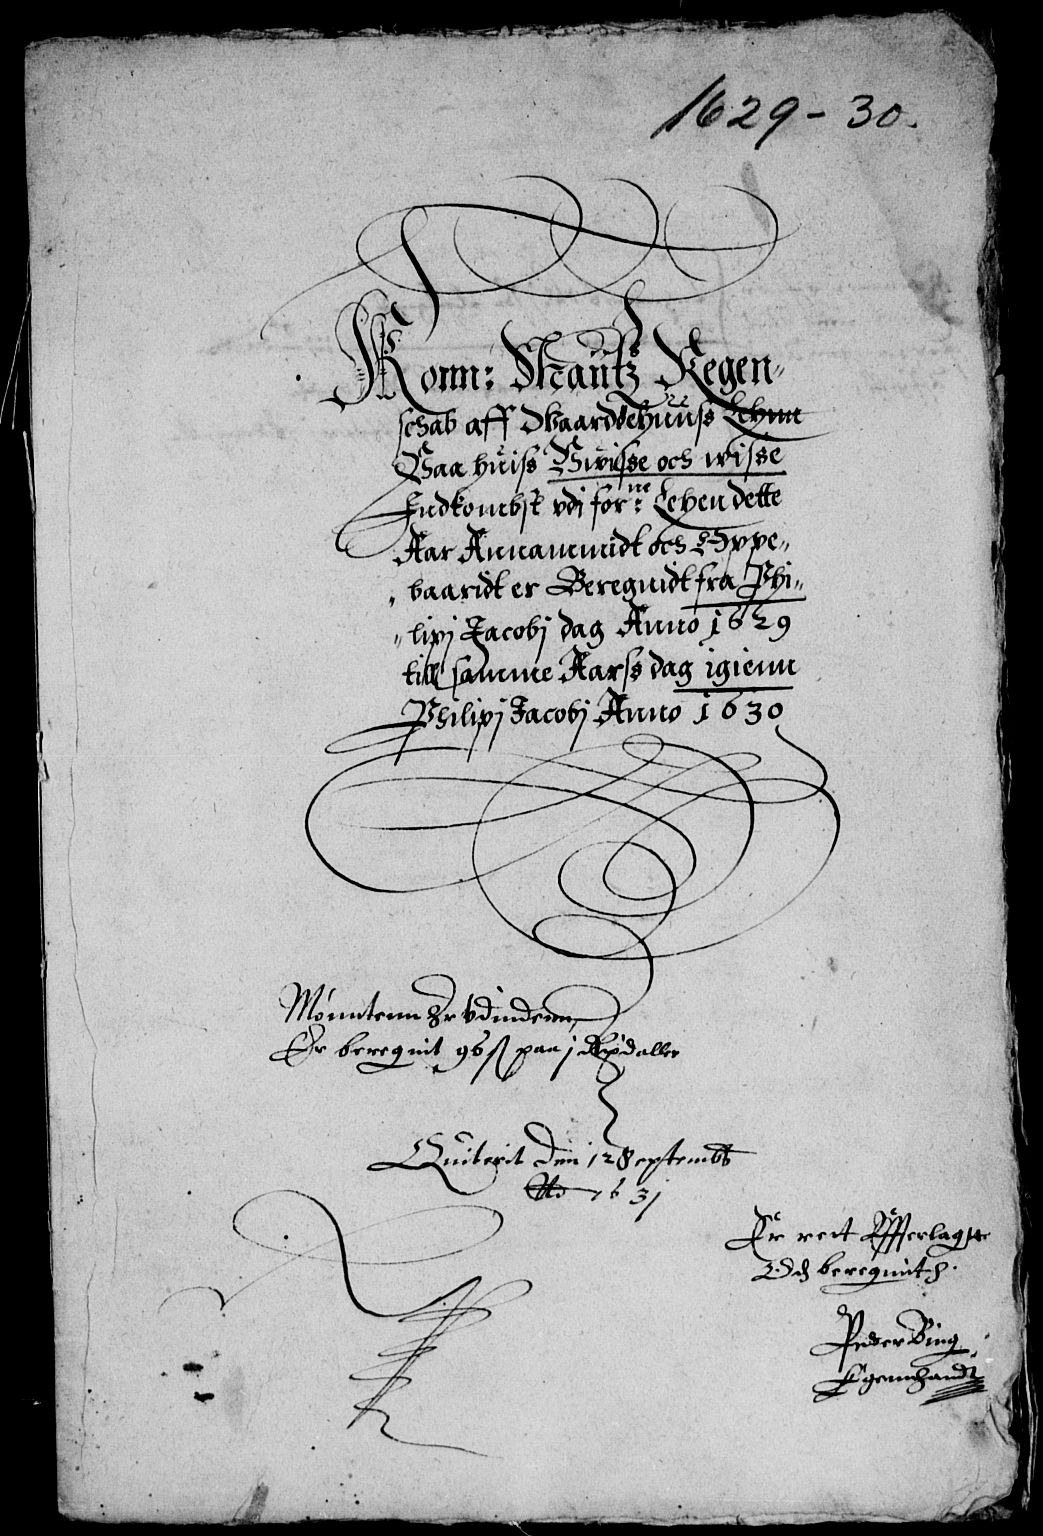 1629-30.
Konn: Maÿtz Regen„
schab aff Vaardøehuuss Lehnn
Paa huiss Uuisse och wisse
Indkombst vdi forne: Lehen dette
Aar Annammidt och Oppe„
„baaridt er Beregnidt fra Phi„
„lipi Jacobj dag Anno 1629
till samme Aarss dag igienn
Philipj Jacobj Anno 1630
Mønntenn Er Vdindenn
Er beregnit 96 ß paa j Rixdaller
Quiterit den 12 Septemb
Ao 1631
Er rett Offuerlagtte
Och beregnith.
Peder Bing
Egennhandt